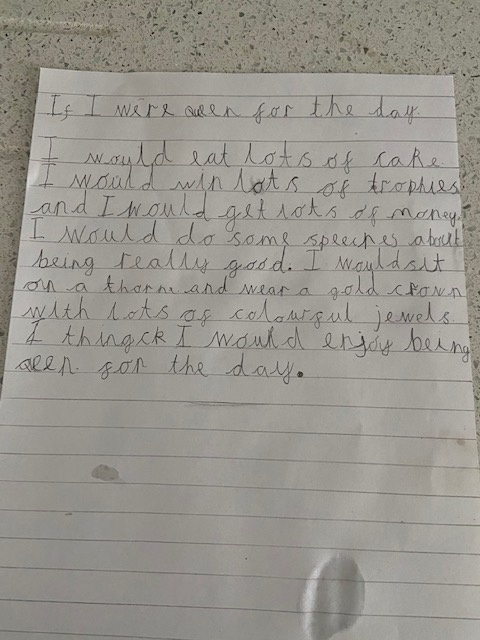 If I were qeen for the day
I would eat lots of cake
I would win lots of trophies
and I would get lots of money.
I would do some speeches about
being really good. I would sit
on a thorne and wear a gold crown
with lots of colourful jewels
I thingck I would enjoy being
qeen for the day.